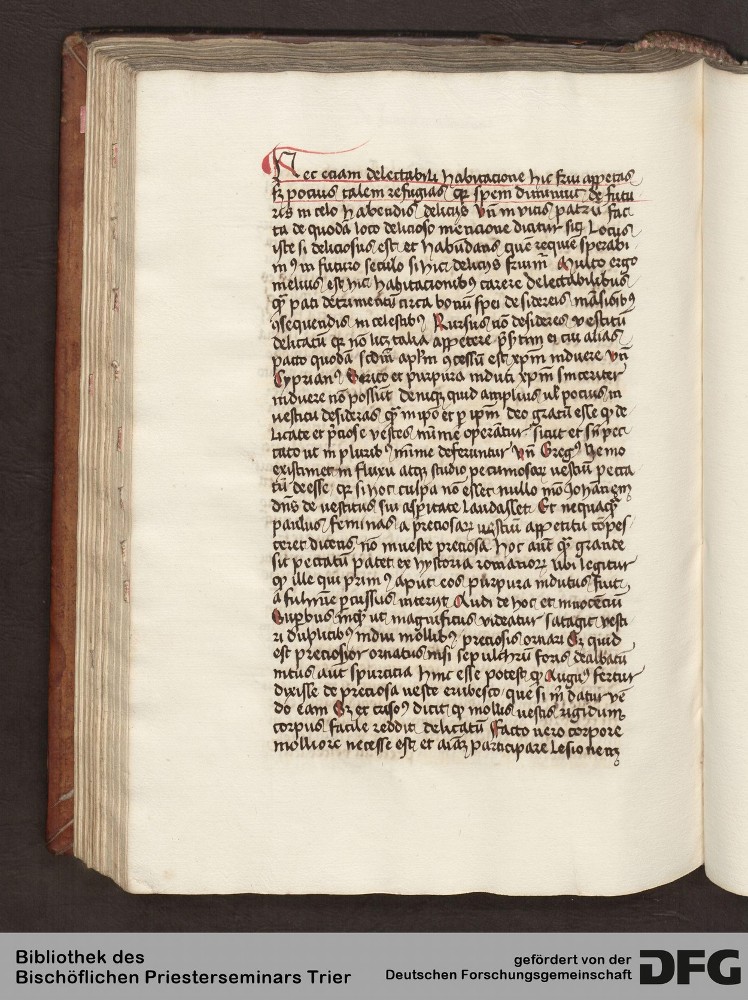 Nec eciam delectabili habitacione hic frui appetas
sʒ pocius talem refugias qꝛ spem diminuit de futu
ris in celo habendis delicijs Vn̄ in vitis patrū fac
ta de quodā loco delicioso mencione dicitur sic Locus
iste si deliciosus est et habūdans que requie sperabi
mꝰ in futuro seculo si hic delicijs fruim̄ Multo ergo
melius est hic habitacionibꝰ carere delectabilibus
qꝫ pati detrimentū circa bonū spei de sidereis māsiōibꝰ
ꝯsequendis in celestibꝰ Rursus nō desideres vestitū
delicatū qꝛ nō licʒ talia appetere p̄sʳtim ei cui alias
pacto quodā scdm̄ aplm̄ ꝯcessū est xpm̄ induere vn̄
Cyprianꝰ Serico et purpura induti xpm̄ sinceriter
induere nō possūt Deniqꝫ quid amplius ul̓ pocius in
vestitu desideras qꝫ in ipo et ꝑ ipm̄ deo gratū esse qꝫ de
licate et p̄ciose vestes mīme operātur sicut et sn̄ pec
cato ut in pluribꝰ mīme deferuntur Vn̄ Gregꝰ Nemo
existimet in fluxu atqꝫ studio pecuniosaꝝ vestiū pecca
tū deesse qꝛ si hoc culpa nō esset nullo mō Johānem
dn̄s de vestitus sui asꝑitate laudasset Et nequaqꝫ
paulus feminas a preciosaꝝ vestiū appetitu cōpes
ceret dicens nō in veste preciosa hoc aūt qꝫ grande
sit peccatū patet ex hystoria romanoꝝ vbi legitur
qꝫ ille qui primꝰ aput eos purpura indutus fuit
a fulmine ꝑcussus interijt Audi de hoc et innocenciū
Suꝑbus inqͥt ut magnificus videatur satagit vesti
ri duplicibꝰ indui mollibꝰ preciosis ornari Sʒ quid
est preciosior ornatus nisi sepulchrū foris dealbatū
intus aut spurcitia hinc esse potest qꝫ Augꝰ fertur
dixisse de preciosa veste erubesco que si m̄ datur vē
do eam Sʒ et crisoꝰ dicit qꝫ mollis vestis rigidum
corpus facile reddit delicatū Facto vero corpore
molliore necesse est et aīaʒ participare lesionem
Bibliothek des
Bischöflichen Priesterseminars Trier
gefördert von der
Deutschen Forschungsgemeinschaft
DFG